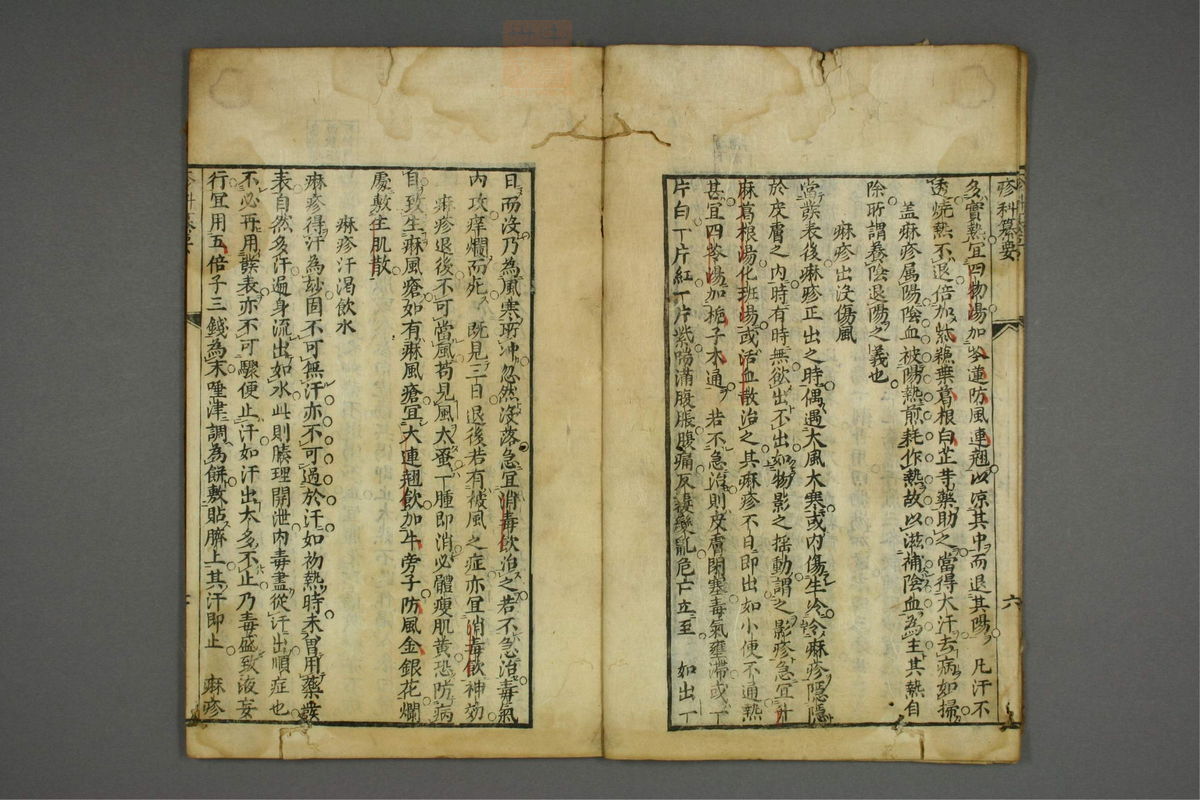 疹科纂要
六
多實熱宜四物湯加芩連防風連翹以凉其中而退其陽 凡汗不
透燒熱不退倍加紫蘓葉葛根白芷芎藥助之當得大汗去病如掃
盖麻疹属陽陰血被陽熱煎耗作熱故以滋補陰血為主其熱自
除所謂養陰退陽之義也
麻疹出没傷風
當發表後麻疹正出之時偶遇大風大寒或内傷生冷令麻疹隱隱
於皮膚之内時有時無欲出不出如物影之揺動謂之影疹急宜升
麻葛根湯化斑湯或活血散治之其麻疹不日即出如小便不通熱
甚宜四苓湯加梔子木通 若不急治則皮膚閉塞毒氣壅滯或一
片白一片紅一片紫喘滿腹脹腹痛反復變亂危亡立至 如出一
日而没乃為風寒所冲忽然没落急宜消毒飲治之若不急治毒氣
内攻痒爛而死 既見三日退後若有被風之症亦宜消毒飲神効
麻疹退後不可當風苟見風太蚤一腫即消必體瘦肌黄恐防病
目致生麻風瘡如有麻風瘡宜大連翹飲加牛旁子防風金銀花爛
處敷生肌散
麻疹汗渴飲水
麻疹得汗為玅固不可無汗亦不可過於汗如初熱時未曽用藥發
表自然多汗遍身流出如水此則腠理開泄内毒盡從汗出順症也
不必再用發表亦不可驟便止汗如汗出太多不止乃毒盛致液妄
行宜用五倍子三錢為末唾津調為餅敷貼臍上其汗即止 麻疹